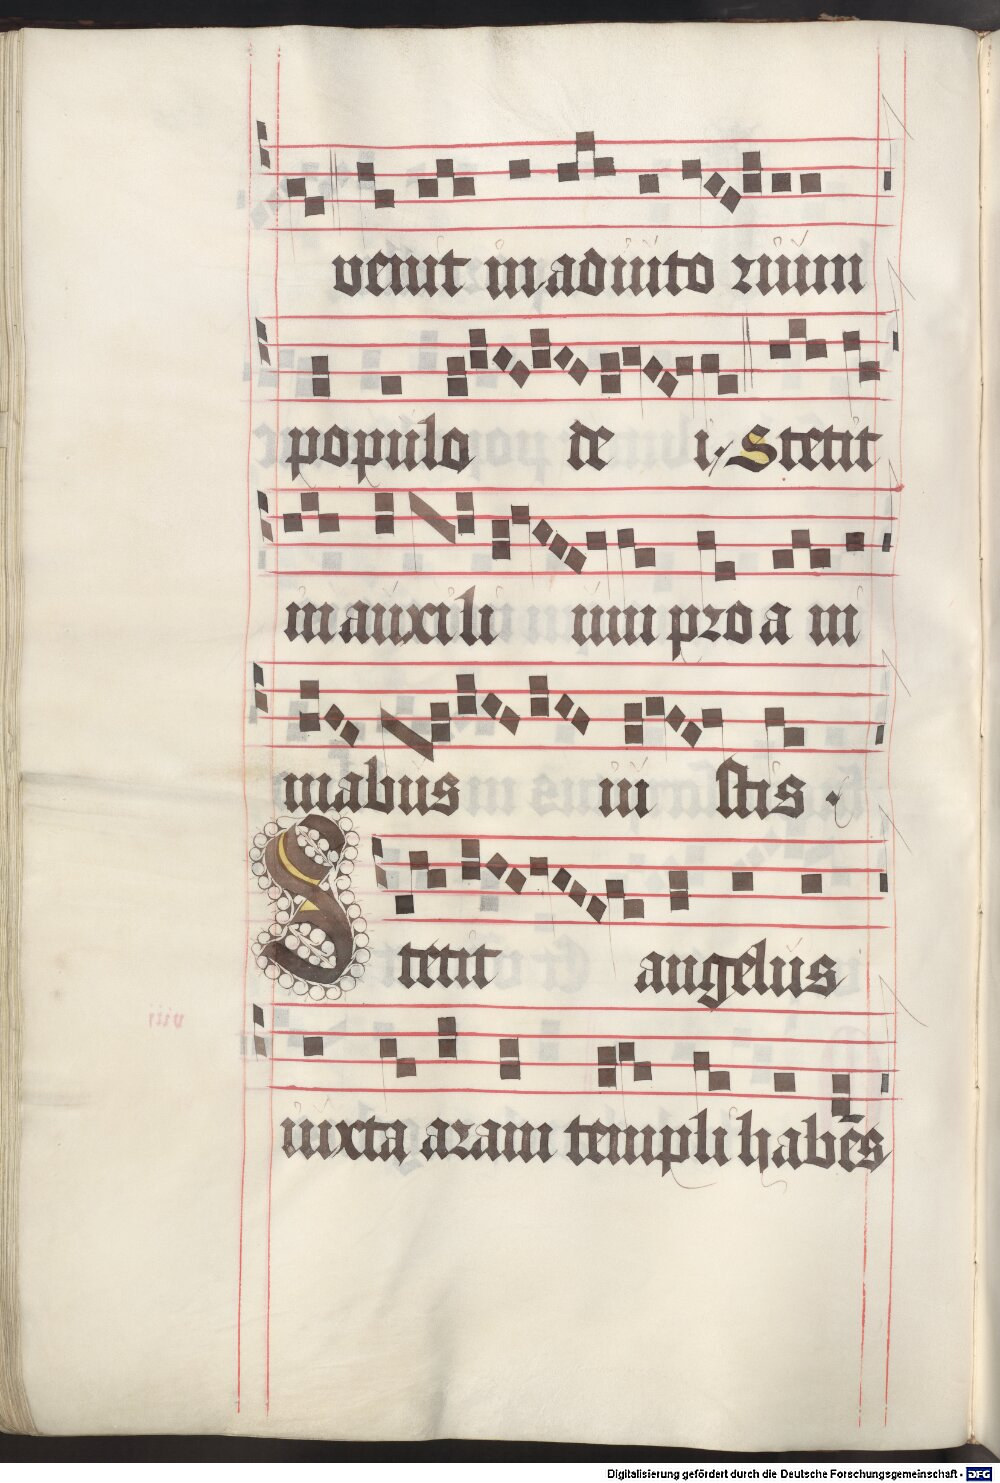 venit in adiuito rium
populo de i. Stetit
in auxili um pro a ni
mabus iu stis .
Stetit angelus
iuxta aram templi habe͞s
Digitalisierung gefördert durch die Deutsche Forschungsgemeinschaft - DFG